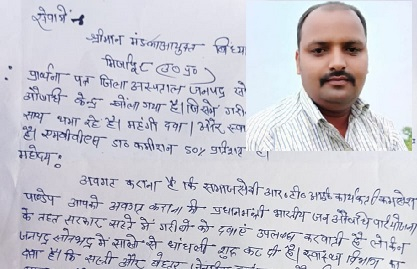 सेवामें
श्रीमान मंडलायुक्त विंध्या
मिर्जापुर (उ० प्र०)
प्रार्थना पत्र जिला अस्पताल जनपद
औषधी केन्द्र खोला गया है। जिसमें गरी
साथ रहे है। महंगी दवा। और स्वा
है। एमबीबीएस डा० कमीशन 50%
महोदय:
अवगत कराना है कि समाजसेवी आर० टी० आई० कार्यकर्ता कमलेश
पाण्डेय आपको अवगत कराना की प्रधानमंत्री भारतीय जन औषधि परियोजना
के तहत सरकार सस्ते में गरीबो को दवाएं उपलब्ध करवाती है लेकिन
जनपद सोनभद्र में सालो से धांधली शुरू कर दी है। स्वास्थ्य विभाग का
कि सस्ती और बेहतर